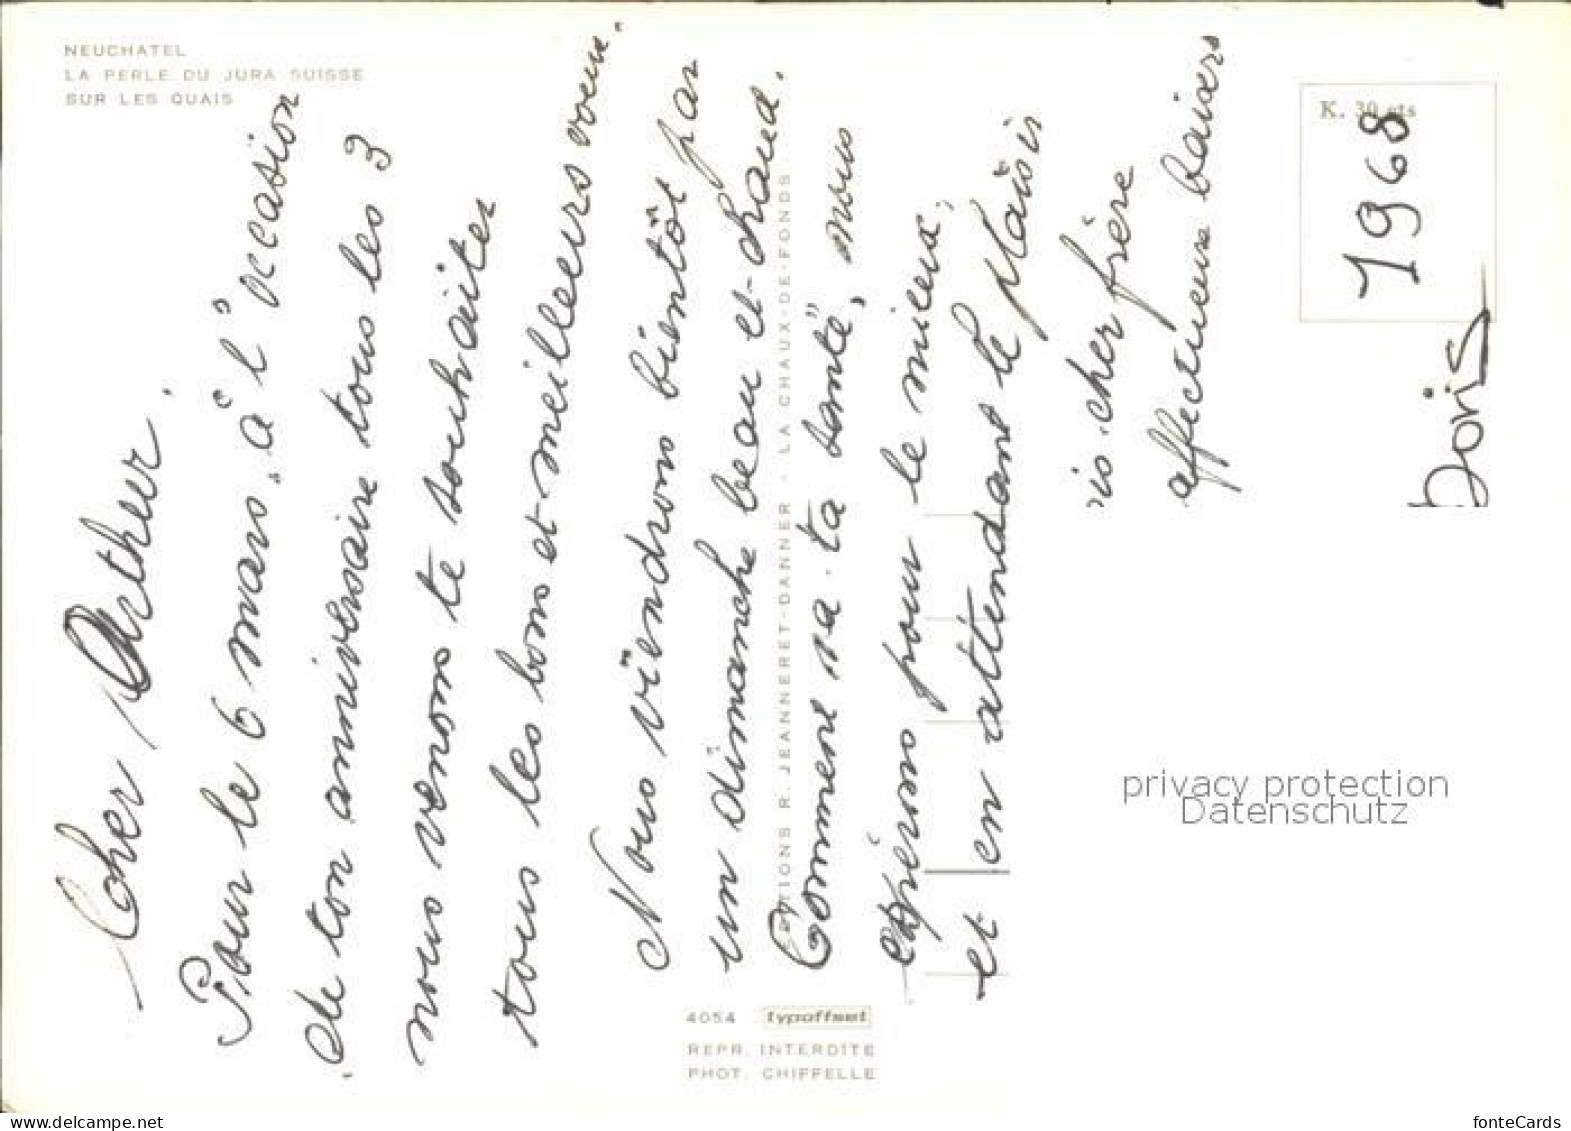 NEUCHATEL
LA PERLE DU JURA SUISSE
SUR LES QUAIS
Cher Arthur.
Pour le 6 mars, à l'occasion
de ton anniversaire tous les 3
nous venons te souhaiter
tous les bons et meilleurs voeux.
Nous viendrons bientôt par
un dimanche beau et chaud.
Comment va ta santé, nous
espérons pour le mieux,
et en attendant le plaisir
cher frère
affectueux baisers
Doris
K. 30 cts
1968
EDITIONS R. JEANNERET-DANNER - LA CHAUX-DE-FONDS
4054 typoffset
REPR. INTERDITE
PHOT. CHIFFELLE
privacy protection
Datenschutz
delcampe.net
fonteCards